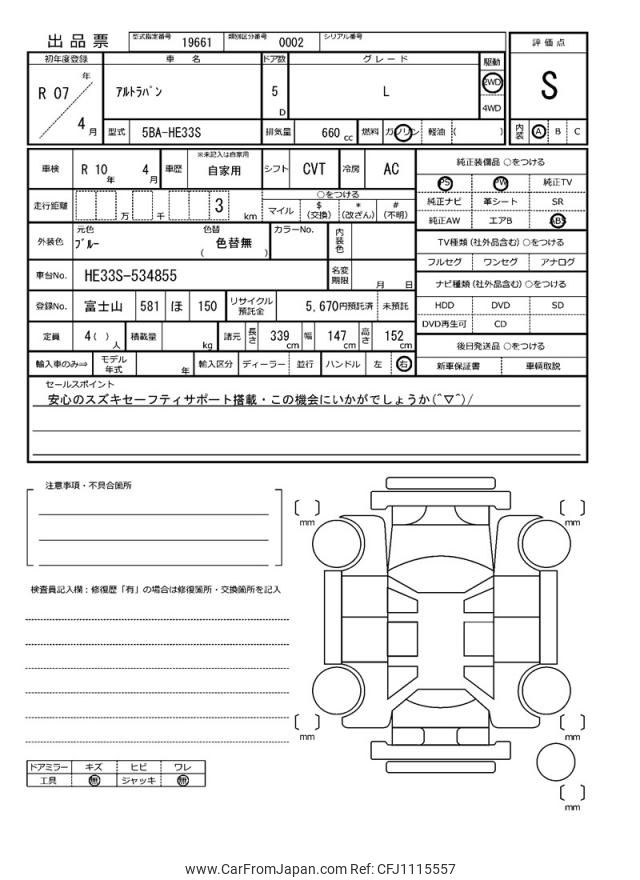 出品票 型式指定番号 19661 類別区分番号 0002 シリアル番号
評価点
S
内装 A B C
初年度登録 車名 ドア数 グレード 駆動
R 07 年 4 月 アルトラパン 5 D L 2WD 4WD
型式 5BA-HE33S 排気量 660 cc 燃料 ガソリン 軽油 ( )
車検 R 10 年 4 月 車歴 ※未記入は自家用 自家用 シフト CVT 冷房 AC
走行距離 万 千 3 km ○をつける
マイル $(交換) *(改ざん) #(不明)
外装色 元色 ブルー 色替 ( 色替無 ) カラーNo. 内装色
車台No. HE33S-534855 名変期限 月 日
登録No. 富士山 581 ほ 150 リサイクル預託金 5,670円預託済 未預託
定員 4( ) 人 積載量 kg 諸元 長さ 339 cm 幅 147 cm 高さ 152 cm
輸入車のみ⇒ モデル年式 年 輸入区分 ディーラー 並行 ハンドル 左 右
純正装備品 ○をつける
PS PW 純正TV
純正ナビ 革シート SR
純正AW エアB ABS
TV種類(社外品含む)○をつける
フルセグ ワンセグ アナログ
ナビ種類(社外品含む)○をつける
HDD DVD SD
DVD再生可 CD
後日発送品 ○をつける
新車保証書 車輌取説
セールスポイント
安心のスズキセーフティサポート搭載・この機会にいかがでしょうか(^▽^)/
注意事項・不具合箇所
検査員記入欄：修復歴「有」の場合は修復箇所・交換箇所を記入
[ ] mm [ ] mm
[ ] mm [ ] mm
[ ] mm
ドアミラー キズ ヒビ ワレ
工具 無 ジャッキ 無
www.CarFromJapan.com Ref: CFJ1115557